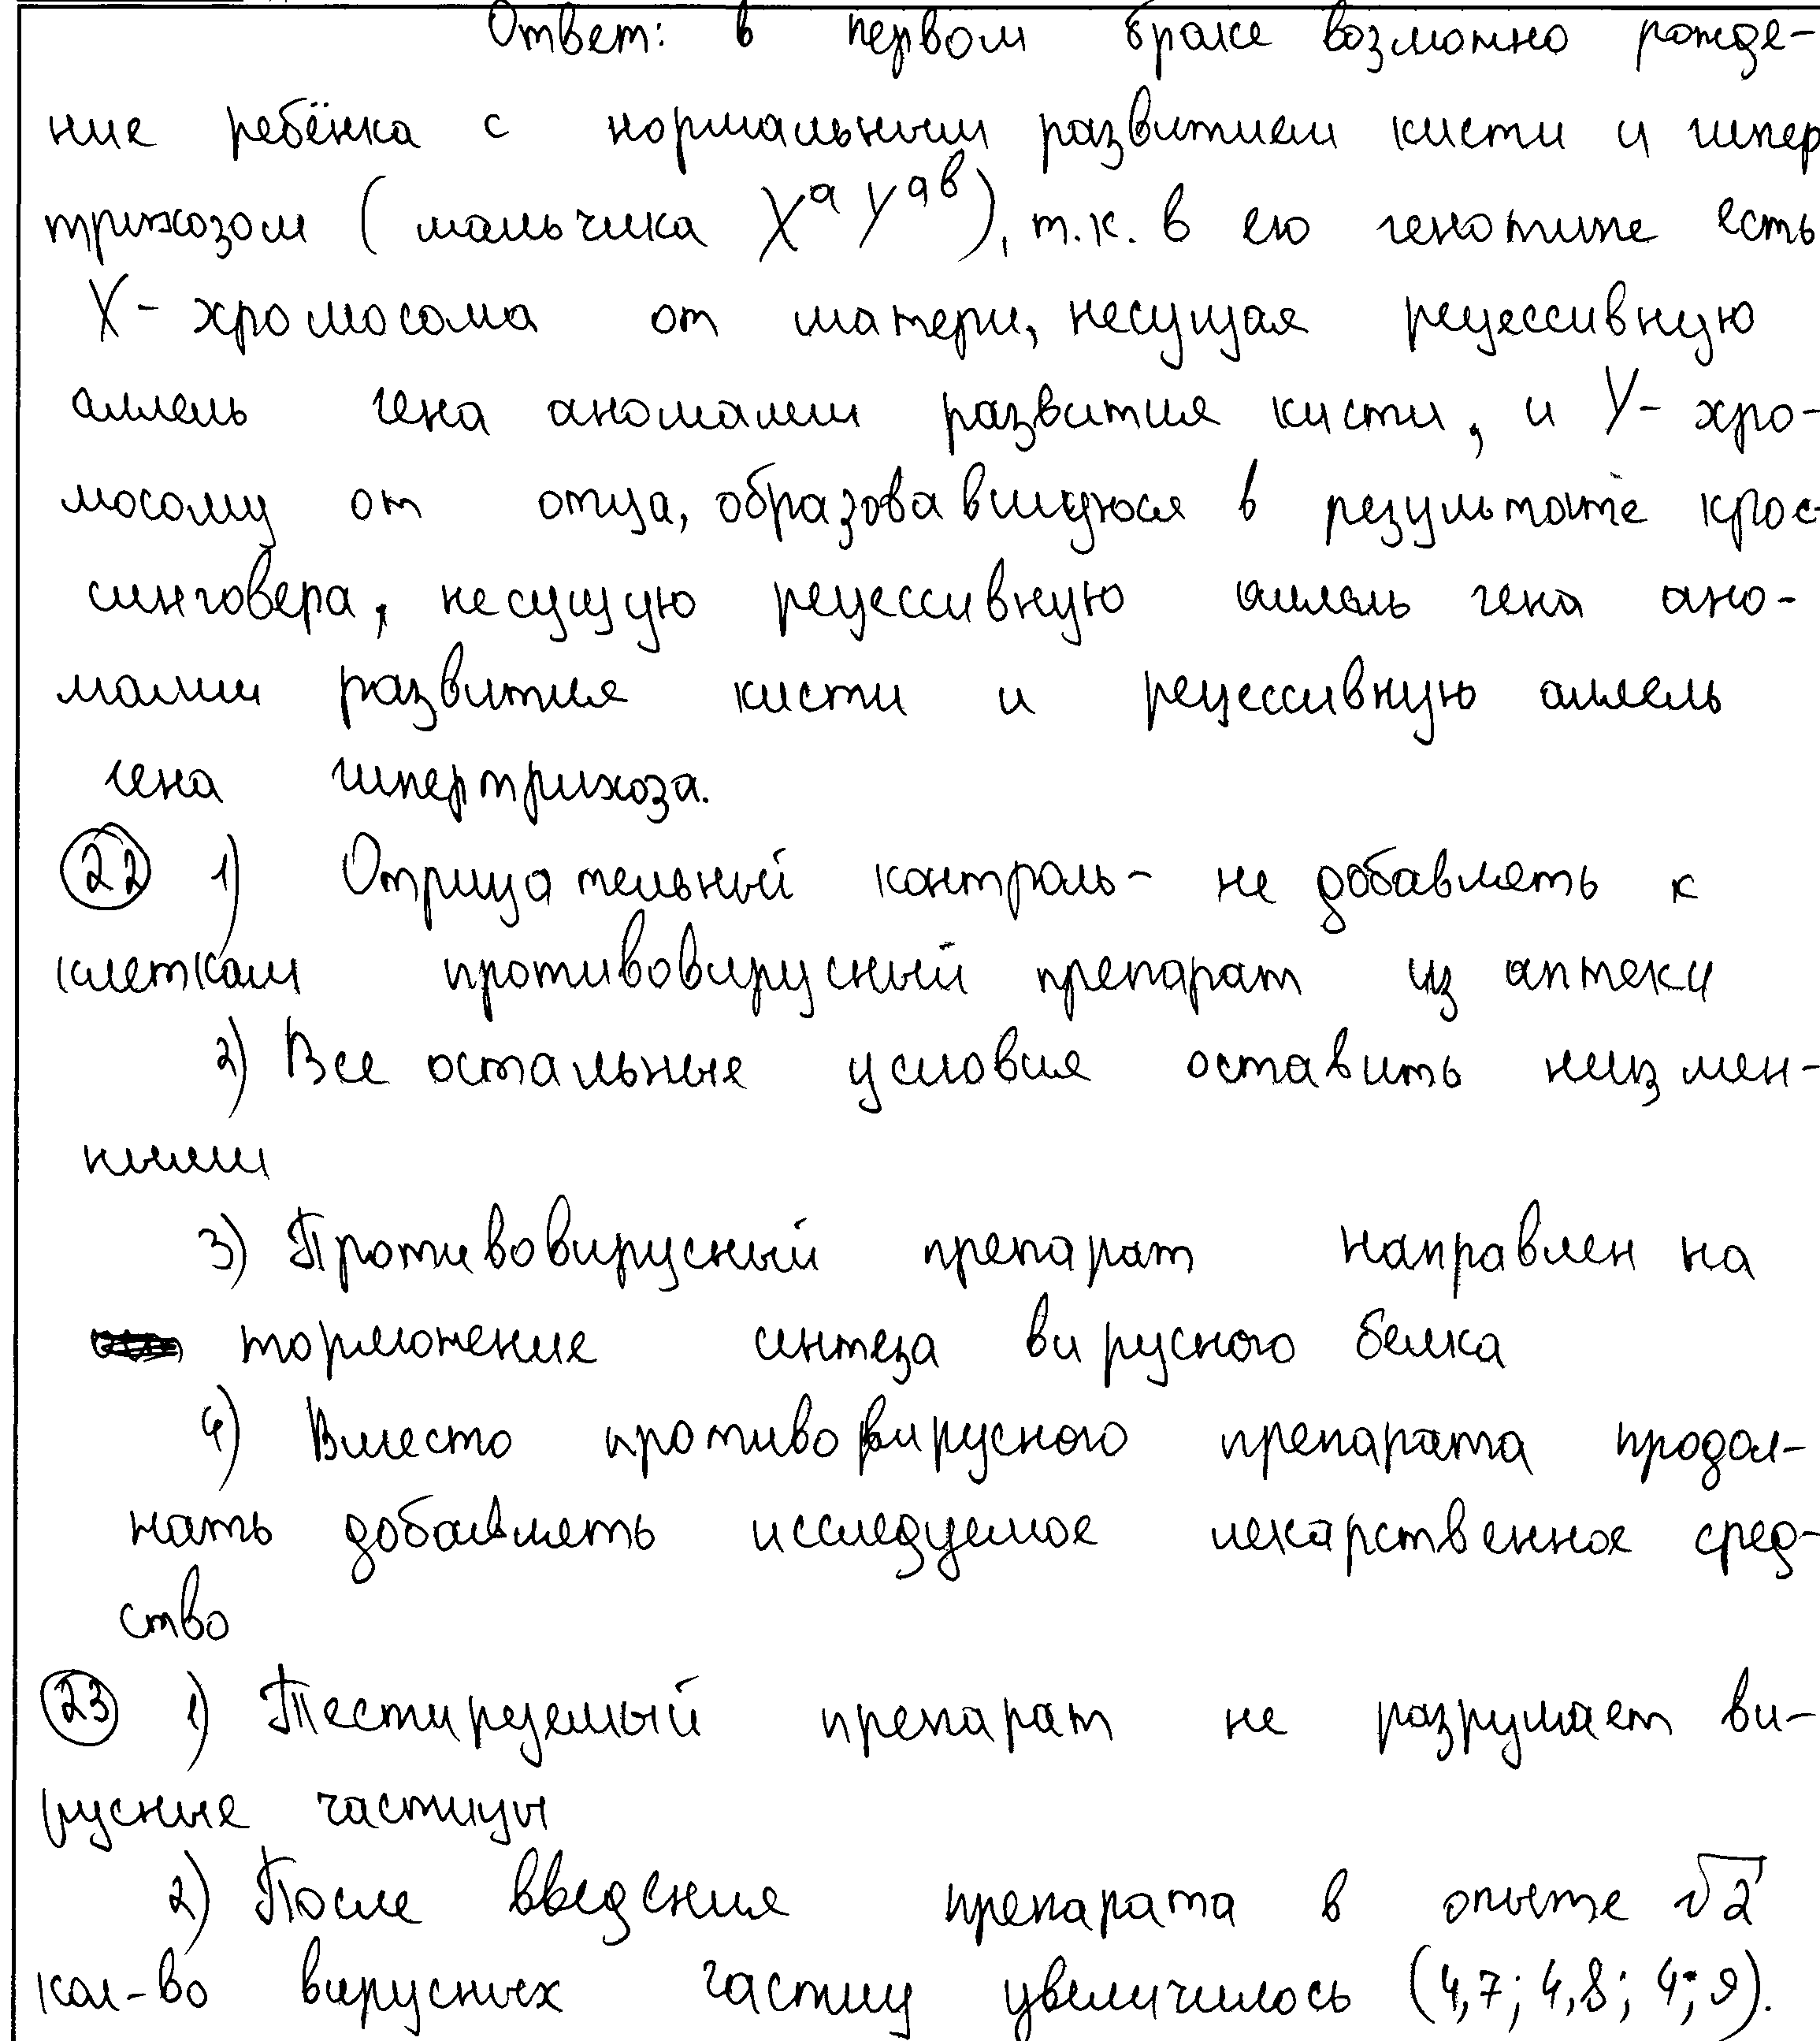 Ответ: в первом браке возможно рожде-
ние ребёнка с нормальным развитием кисти и гипер
трихозом (мальчика Xᵃ Yᵃᵇ), т.к. в его генотипе есть
X- хромосома от матери, несущая рецессивную
аллель гена аномалии развития кисти, и Y- хро-
мосому от отца, образовавшуюся в результате крос-
синговера, несущую рецессивную аллель гена ано-
малии развития кисти и рецессивную аллель
гена гипертрихоза.
22 1) Отрицательный контроль- не добавлять к
клеткам противовирусный препарат из аптеки
2) Все остальные условия оставить неизмен-
ными
3) Противовирусный препарат направлен на
торможение синтеза вирусного белка
4) Вместо противовирусного препарата продол-
жать добавлять исследуемое лекарственное сред-
ство
23 1) Тестируемый препарат не разрушает ви-
русные частицы
2) После введения препарата в опыте √2
кол-во вирусных частиц увеличилось (4,7; 4,8; 4;9).